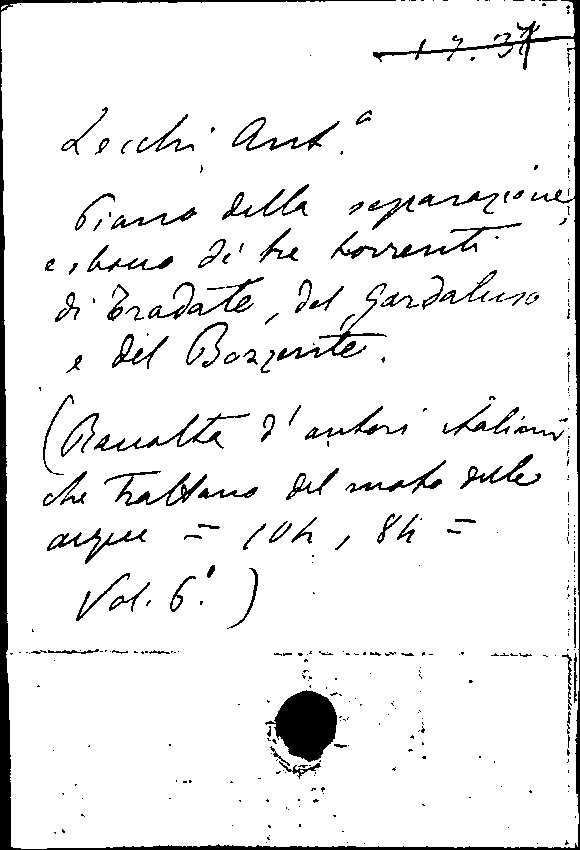 Lecchi, Ant.º
Piano della separazione
e sbocco di tre torrenti
di Tradate, del Gardaluso
e del Bozzente.
(Raccolta d'autori italiani
che trattano del moto delle
acque =
Vol. 6.º)